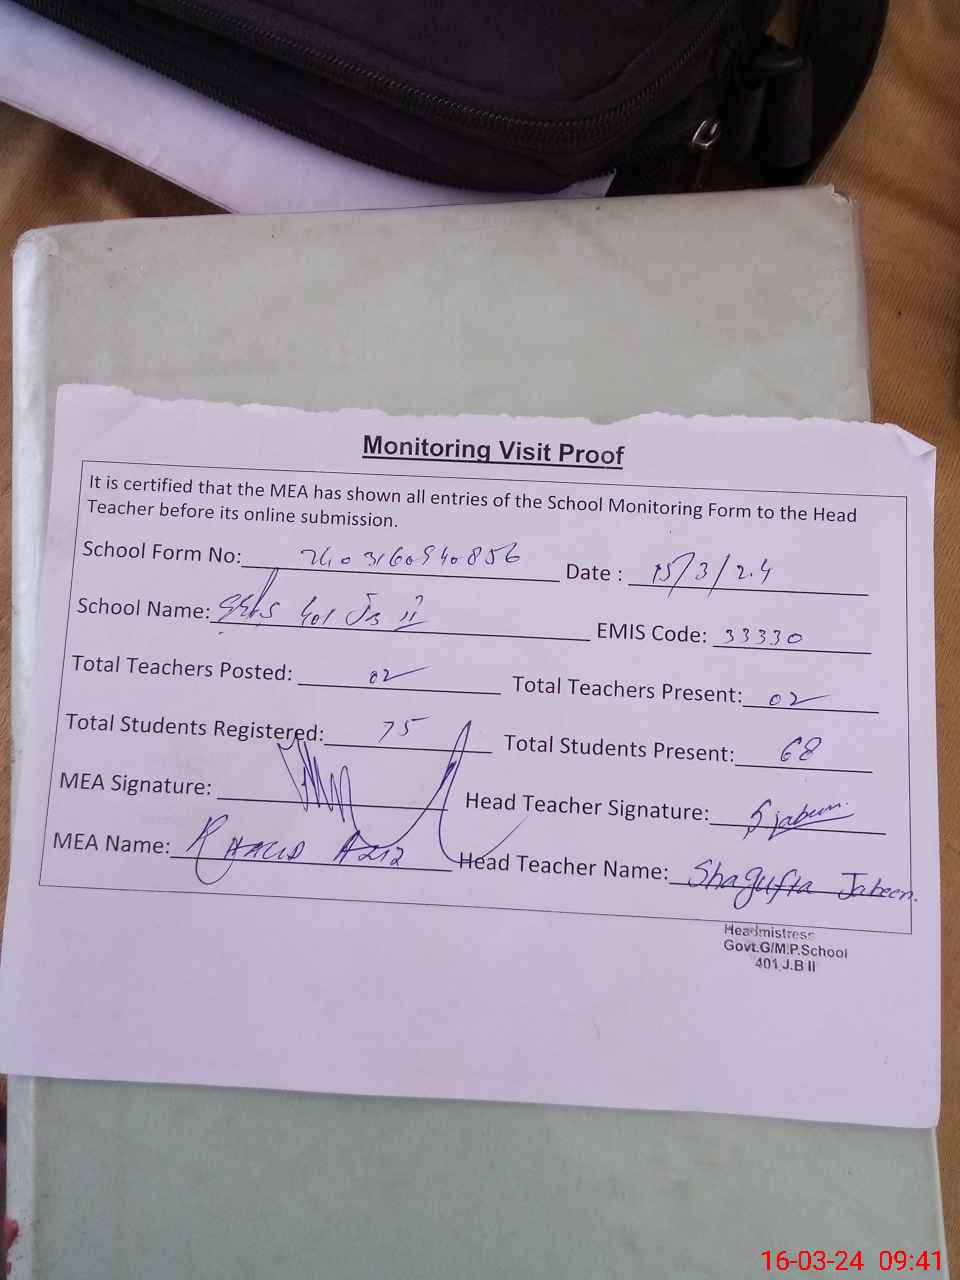 Monitoring Visit Proof
It is certified that the MEA has shown all entries of the School Monitoring Form to the Head
Teacher before its online submission.
School Form No: 2403160940856 Date : 15/3/24
School Name: 401 JB II EMIS Code: 33330
Total Teachers Posted: 02 Total Teachers Present: 02
Total Students Registered: 75 Total Students Present: 68
MEA Signature: Head Teacher Signature: Sjabeen
MEA Name: KHALID AZIZ Head Teacher Name: Shagufta Jabeen.
Headmistress
Govt.G/M.P.School
401 J.B II
16-03-24 09:41